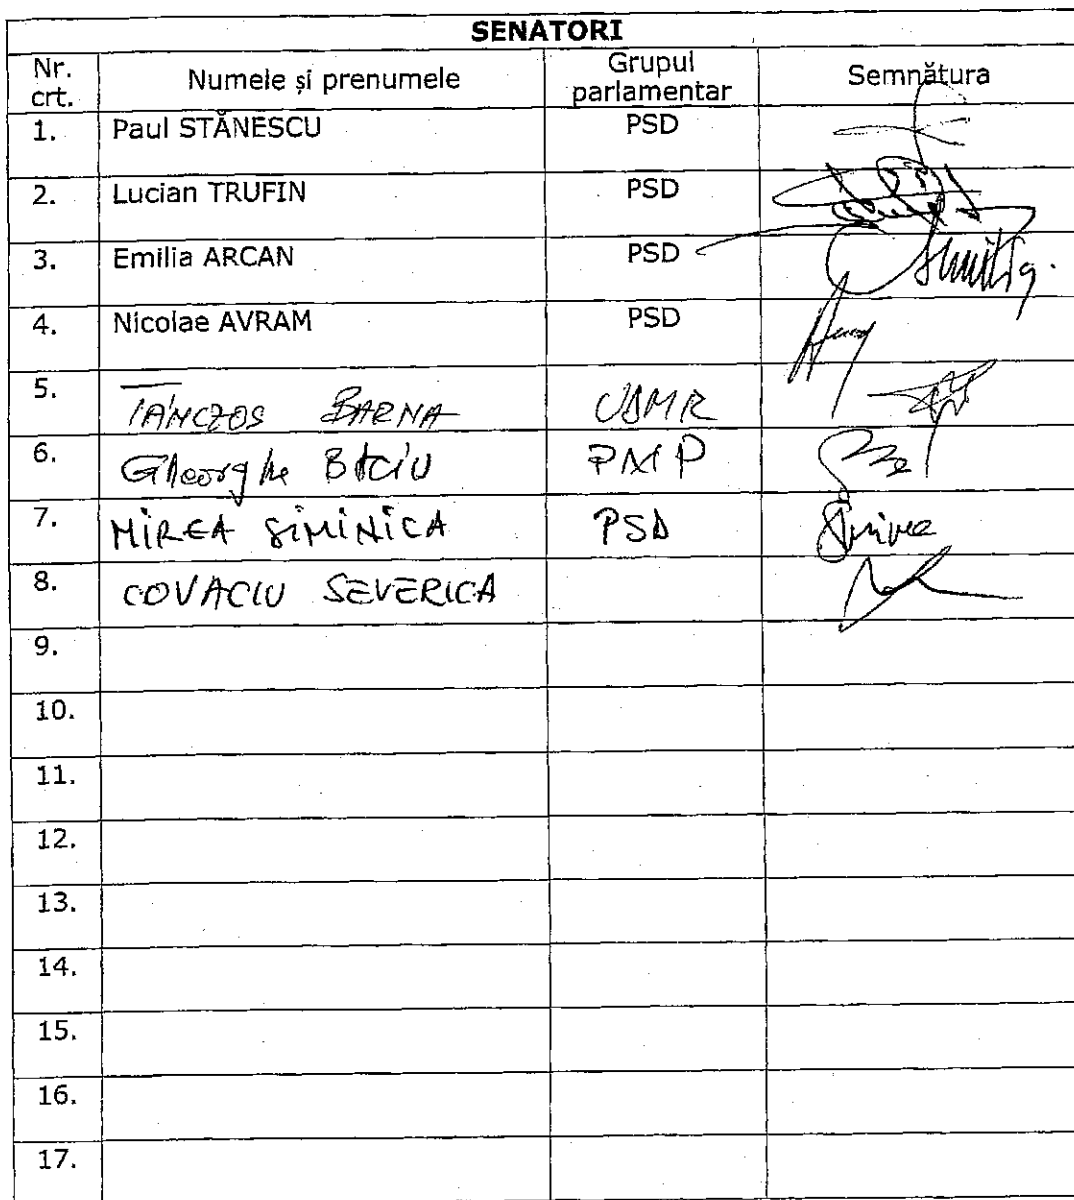 SENATORI
Nr. crt. Numele și prenumele Grupul parlamentar Semnătura
1. Paul STĂNESCU PSD
2. Lucian TRUFIN PSD
3. Emilia ARCAN PSD
4. Nicolae AVRAM PSD
5. TANCZOS BARNA UDMR
6. Gheorghe PMP
7. MIREA SIMINICA PSD
8. COVACIU SEVERICA
9.
10.
11.
12.
13.
14.
15.
16.
17.